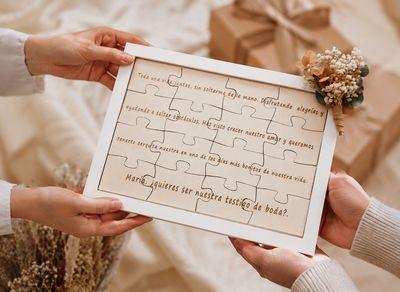 Toda una vida juntos, sin soltarnos de la mano. Disfrutando alegrías y
ayudando a saltar obstáculos. Has visto crecer nuestro amor y queremos
tenerte cerca de nuestra a uno de los días más bonitos de nuestra vida.
María, ¿quieres ser nuestra testigo de boda?.